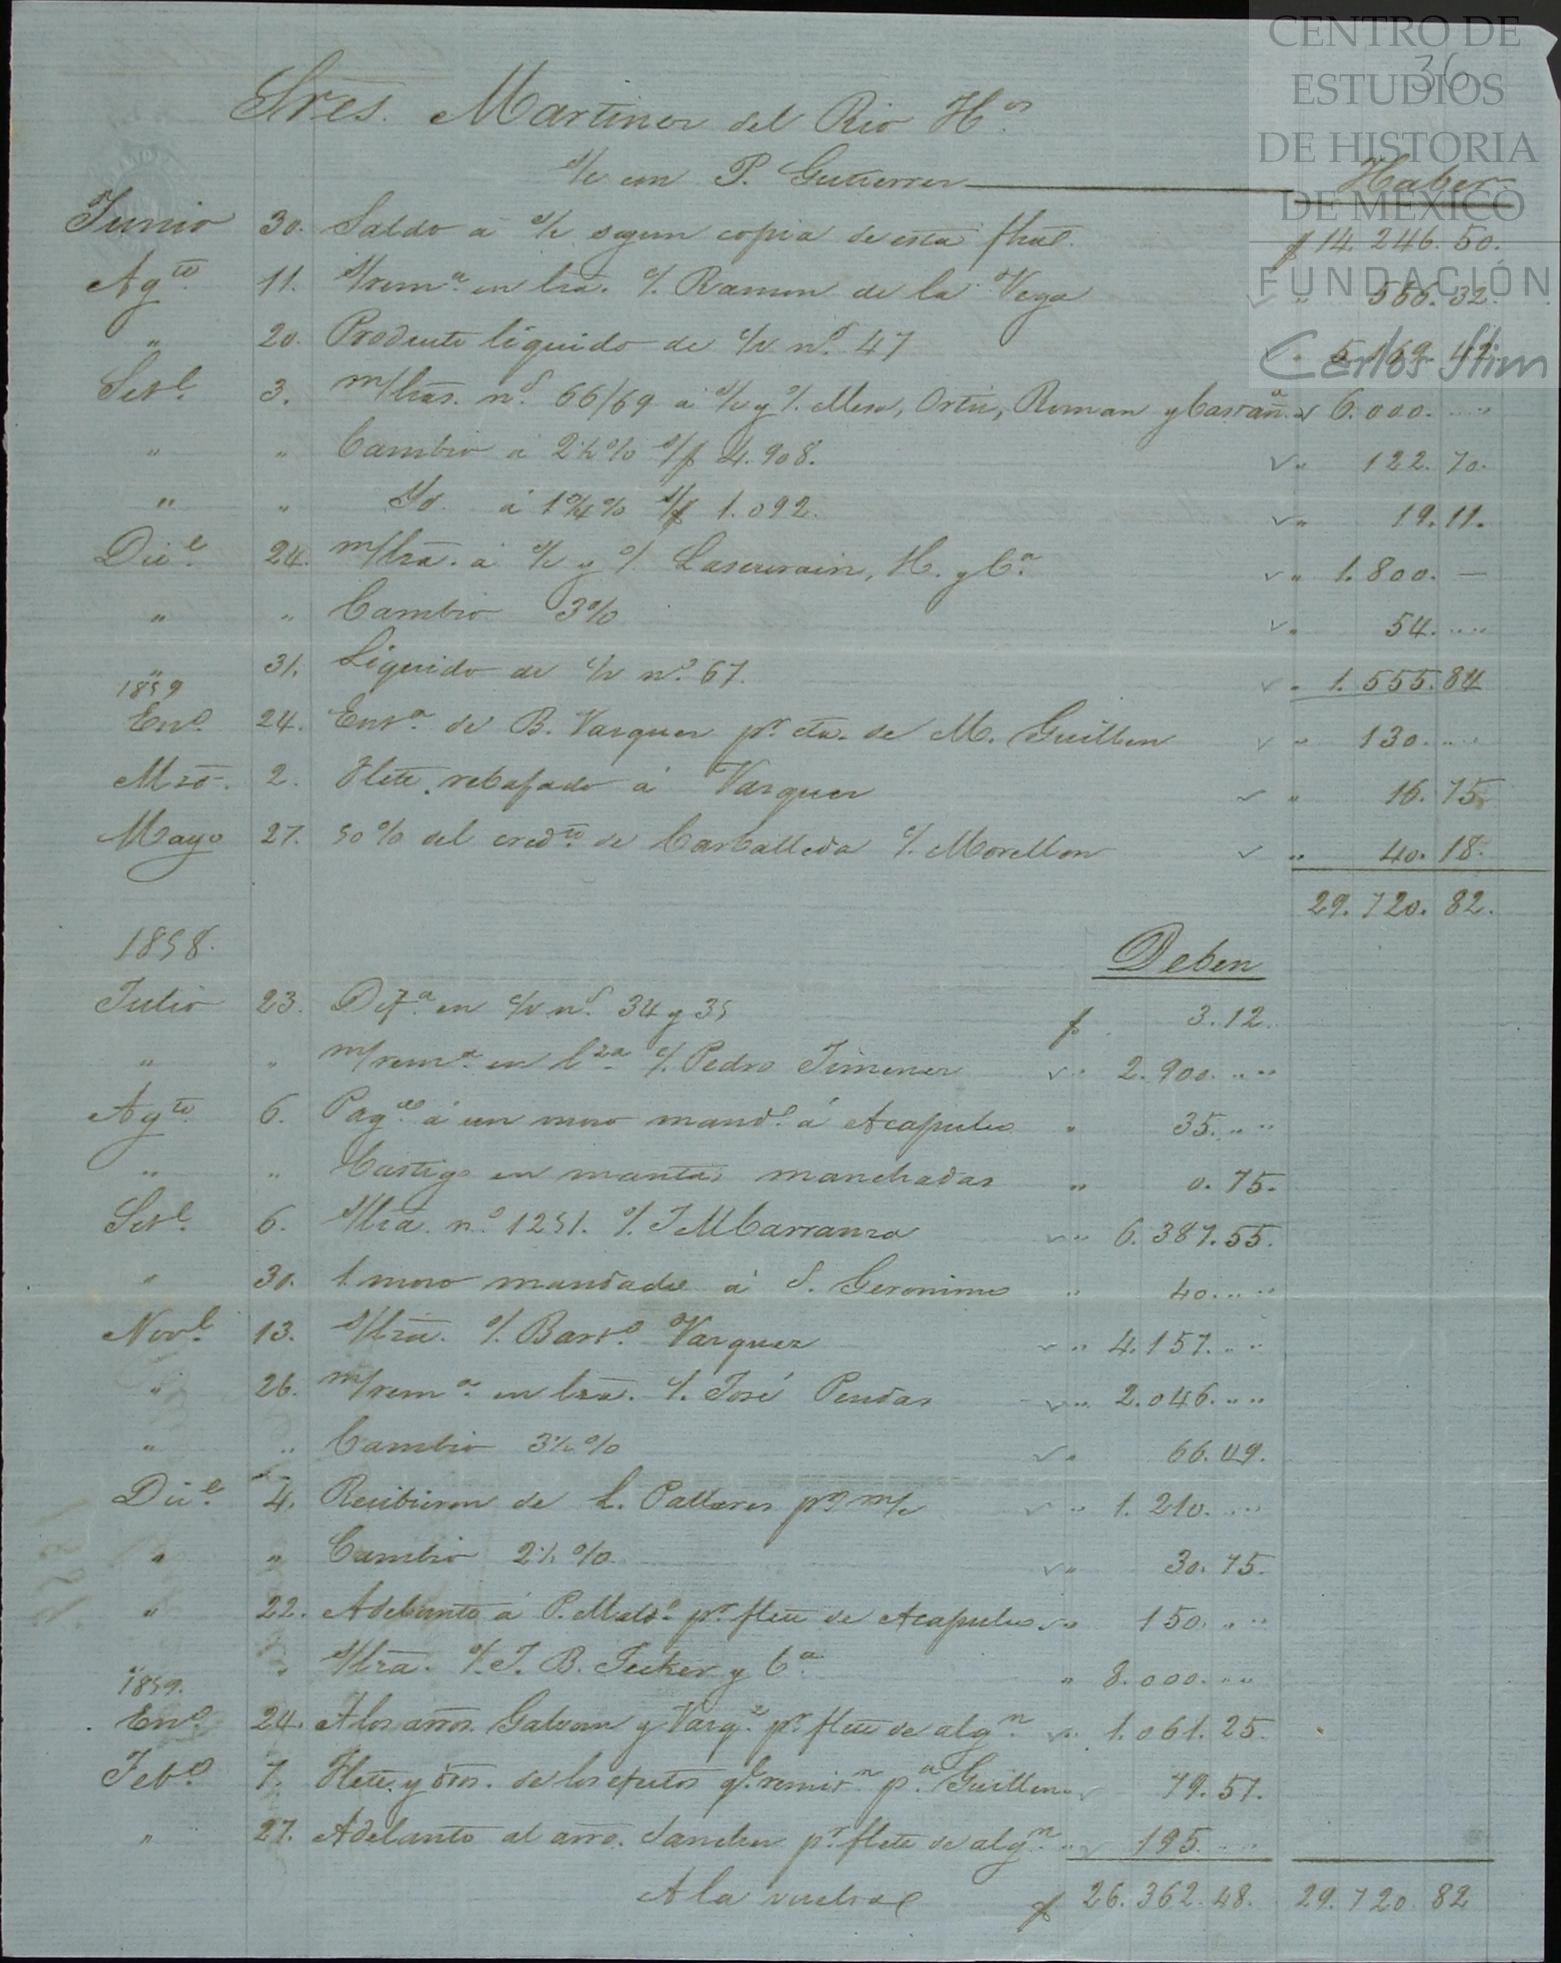 CENTRO DE
ESTUDIOS
DE HISTORIA
DE MÉXICO
FUNDACIÓN
Carlos Slim
36
Sres. Martinez del Rio H.os
s/c con P. Gutierrez Haber
Junio 30. Saldo a s/c segun copia de esta fha. $ 14.246.50.
Agto. 11. s/rema. en lra. c/. Ramon de la Vega " 566.32.
" 20. Producto liquido de c/v no. 47 " 5.169.42.
Sete. 3. m/lras. ns. 66/69 a s/c y c/. Mesa, Ortiz, Roman y Castañ.a " 6.000. "
" " Cambio a 2½% s/$ 4.908. " 122.70.
" " Yd. á 1¾% s/$ 1.092. " 19.11.
Dice. 24. m/lra. a s/c y c/. Lascurain, H. y Ca. " 1.800. —
" " Cambio 3% " 54. "
" 31. Liquido de c/v no. 67. " 1.555.84
1859
Eno. 24. Enta. de B. Vasquez pr. cta. de M. Guillen " 130. "
Mzo. 2. Flete rebajado á Vazquez " 16.75
Mayo 27. 50% del credto. de Carballeda c/. Morellon " 40.18.
29.720.82.
1858. Deben
Julio 23. Difa. en c/v ns. 34 y 35 $ 3.12.
" " m/rema. en lra. c/. Pedro Jimenez " 2.900. "
Agto. 6. Pagdo. á un mozo mando. á Acapulco " 35. "
" " Castigo en mantas manchadas " 0.75.
Sete. 6. s/lra. no. 1251. c/. J M Carranza " 6.387.55.
" 30. 1 mozo mandado á S. Geronimo " 40. "
Nove. 13. s/lra. c/. Barto. Vazquez " 4.157. "
" 26. m/rema. en lra. c/. José Pendas " 2.046. "
" " Cambio 3¼% " 66.49.
Dice. 4. Recibieron de L. Pallares pr. m/c " 1.210. "
" " Cambio 2½% " 30.75.
" 22. Adelanto á P. Maldo. pr. flete de Acapulco " 150. "
" " s/lra. c/. J. B. Jecker y Ca. " 8.000. "
1859.
Eno. 24. A los arros. Galvan y Vazqz. pr. flete de algn. " 1.061.25.
Febo. 7. Flete y dros. de los efectos qe. remitn. pa. Guillen " 79.57.
" 27. Adelanto al arro. Sanchez pr. flete de algn. " 195. "
A la vuelta $ 26.362.48. 29.720.82